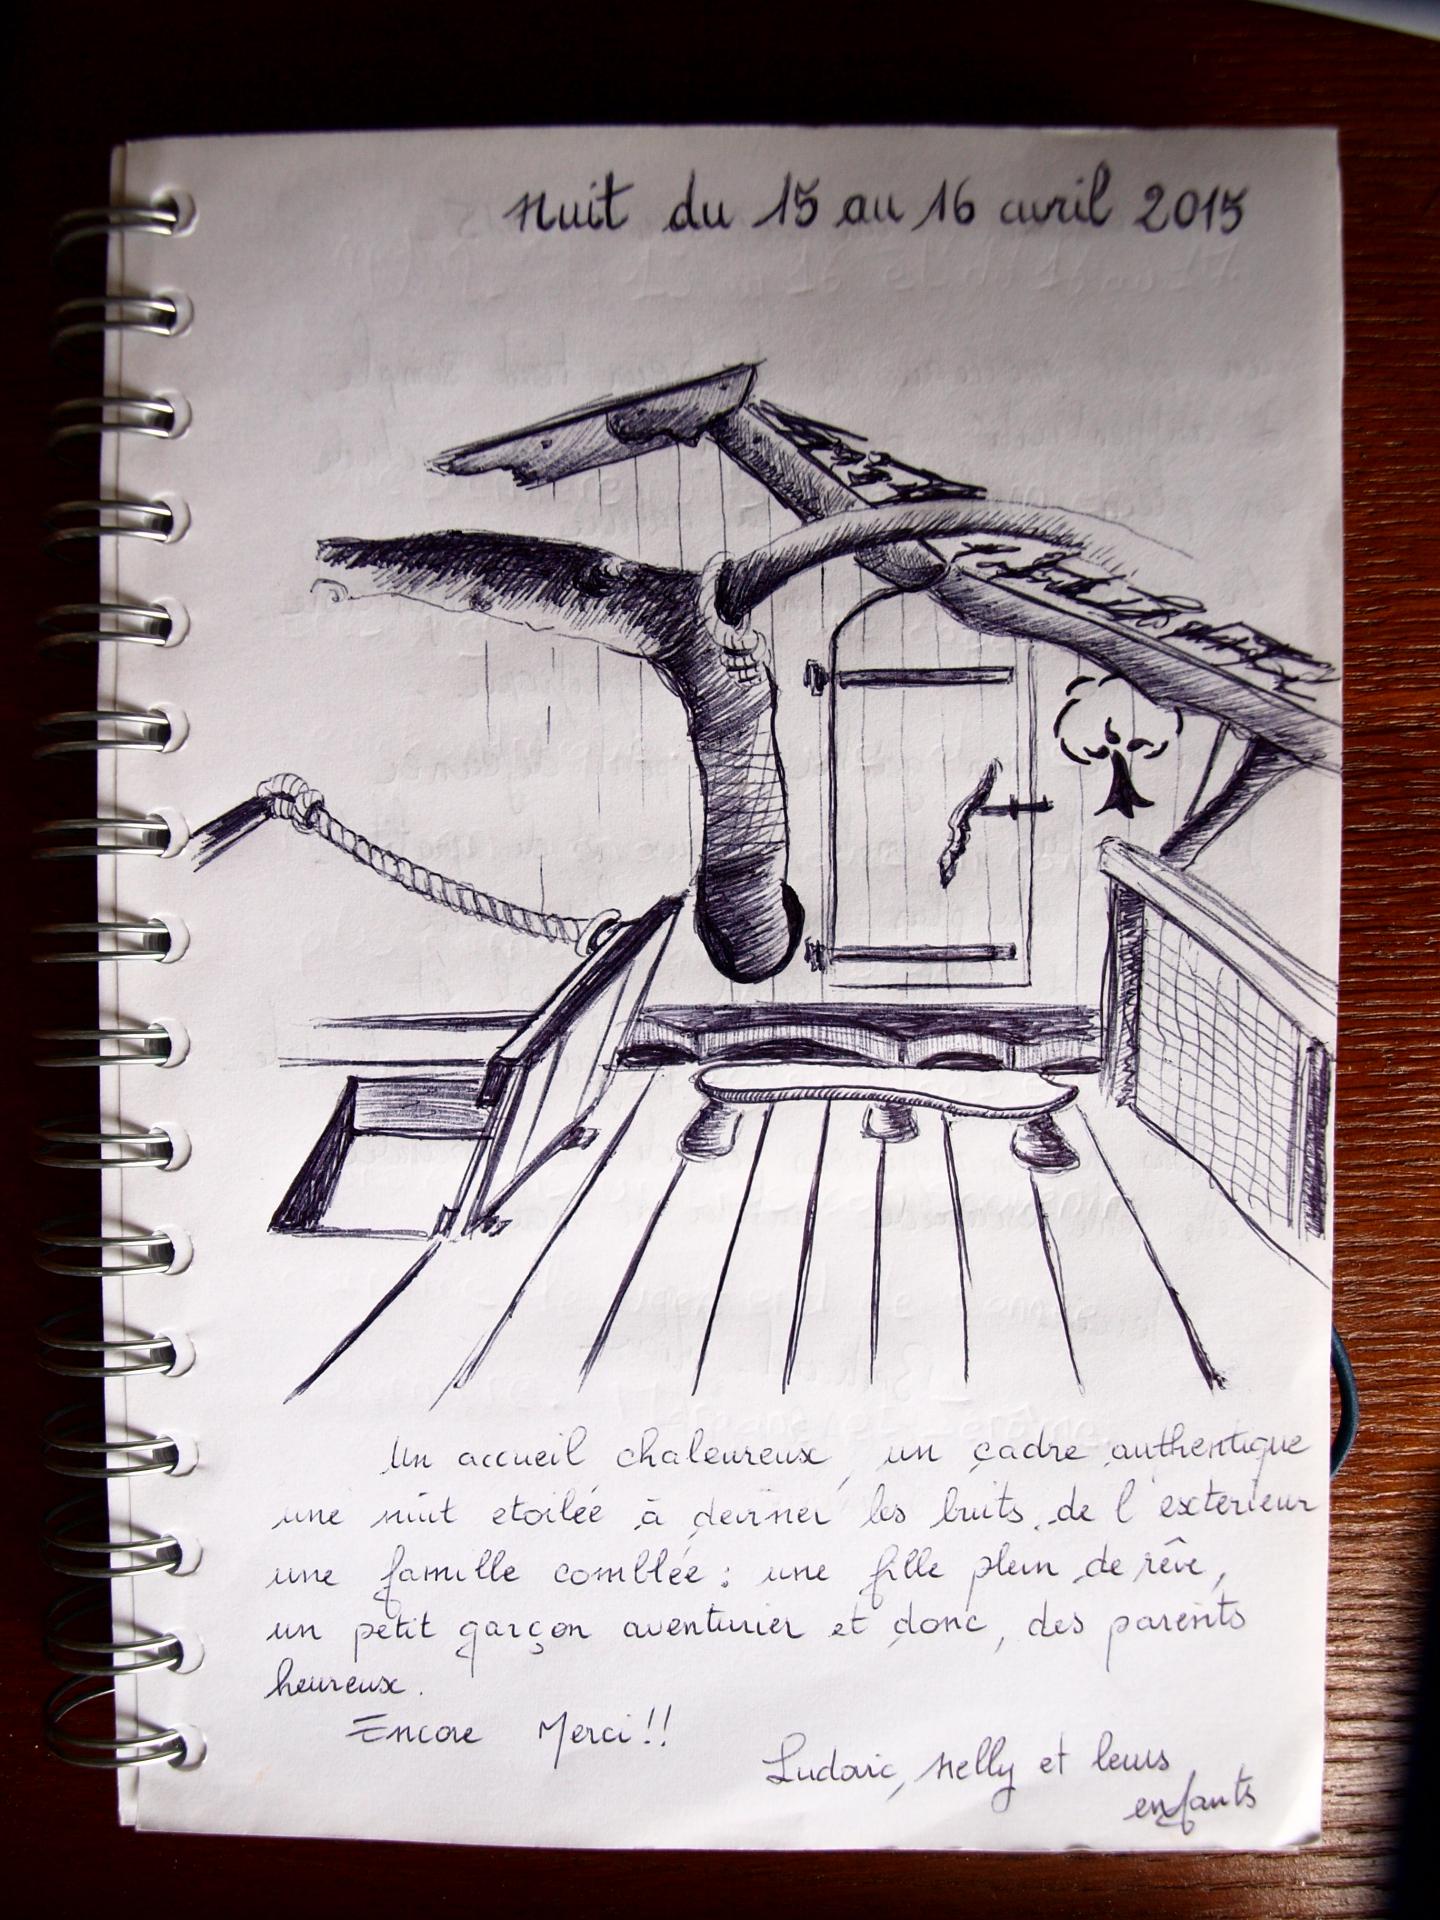 Nuit du 15 au 16 avril 2015
Un accueil chaleureux, un cadre authentique
une nuit etoilée à deviner les bruits de l'exterieur
une famille comblée : une fille plein de rêve,
un petit garçon aventurier et donc, des parents
heureux.
Encore Merci !!
Ludovic, Nelly et leurs
enfants